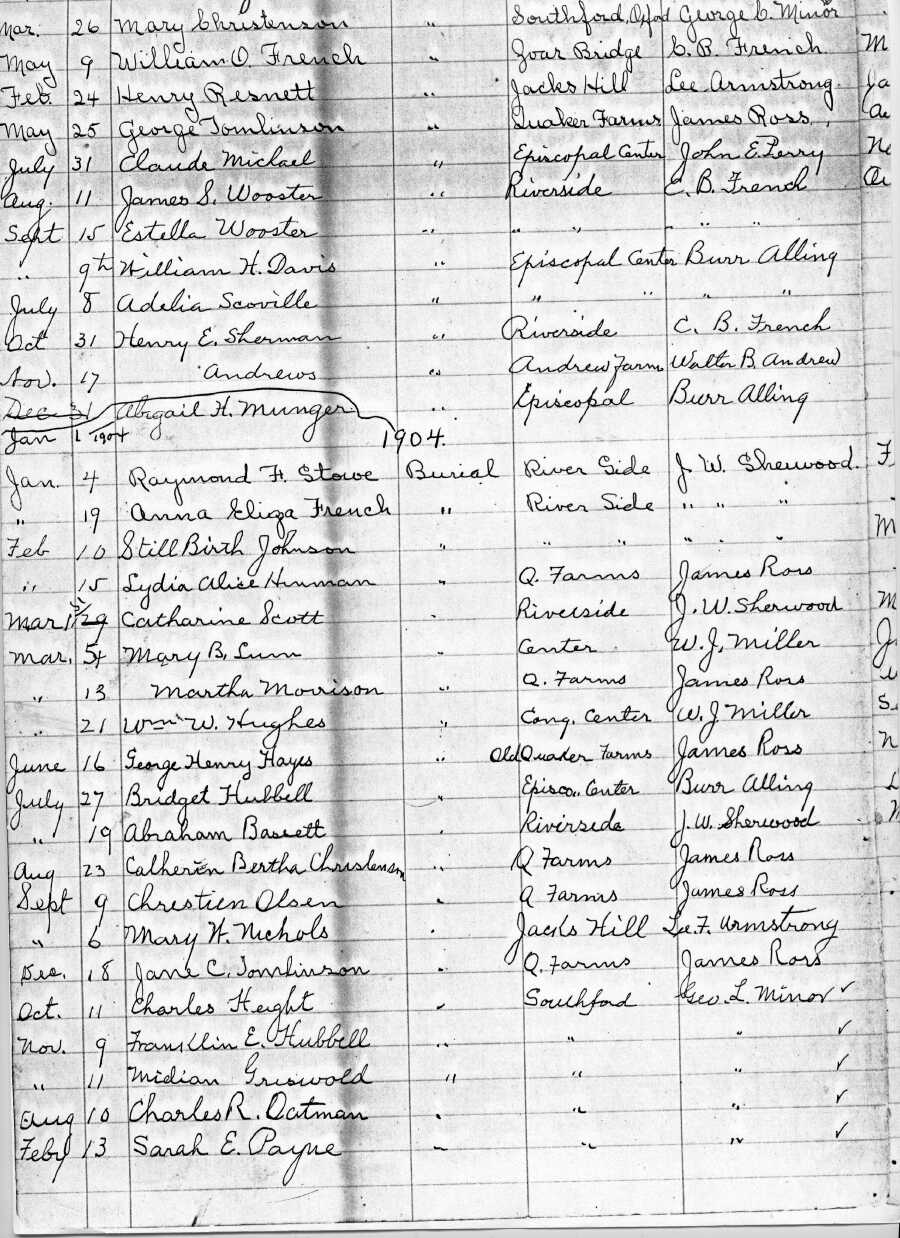 Mar. 26 Mary Christenson " Southford, Oxford George C. Minor
May 9 William O. French " Zoar Bridge C. B. French M
Feb. 24 Henry Resnett " Jacks Hill Lee Armstrong. Ja
May 25 George Tomlinson " Quaker Farms James Ross,
July 31 Claude Michael " Episcopal Center John E. Perry
Aug. 11 James S. Wooster " Riverside C. B. French
Sept 15 Estella Wooster " " " " " "
" 9th William H. Davis " Episcopal Center Burr Alling
July 8 Adelia Scoville " " " " "
Oct 31 Henry E. Sherman " Riverside C. B. French
Nov. 17 Andrews " Andrew Farm Walter B. Andrew
Dec 31 Abigail H. Munger " Episcopal Burr Alling
Jan 1 1904 1904.
Jan. 4 Raymond F. Stowe Burial River Side J. W. Sherwood. F
" 19 Anna Eliza French " River Side " " "
Feb 10 Still Birth Johnson " " " " " " M
" 15 Lydia Alice Hinman " Q. Farms James Ross
Mar Catharine Scott " Riverside J. W. Sherwood M
Mar. Mary B. Lum " Center W. J. Miller
" 13 Martha Morrison " Q. Farms James Ross
" 21 Wm W. Hughes " Cong. Center W. J Miller S
June 16 George Henry Hayes " Old Quaker Farms James Ross
July 27 Bridget Hubbell " Episco. Center Burr Alling
" 19 Abraham Bassett " Riverside J. W. Sherwood
Aug 23 Catherin Bertha Christenson " Q Farms James Ross
Sept 9 Chrestien Olsen " Q Farms James Ross
" 6 Mary W. Nichols " Jacks Hill Lee F. Armstrong
Dec. 18 Jane C. Tomlinson " Q. Farms James Ross
Oct. 11 Charles Height " Southford Geo. L. Minor ✓
Nov. 9 Franklin E. Hubbell " " " ✓
" 11 Midian Griswold " " " ✓
Aug 10 Charles R. Oatman " " " ✓
Feby 13 Sarah E. Payne " " " ✓